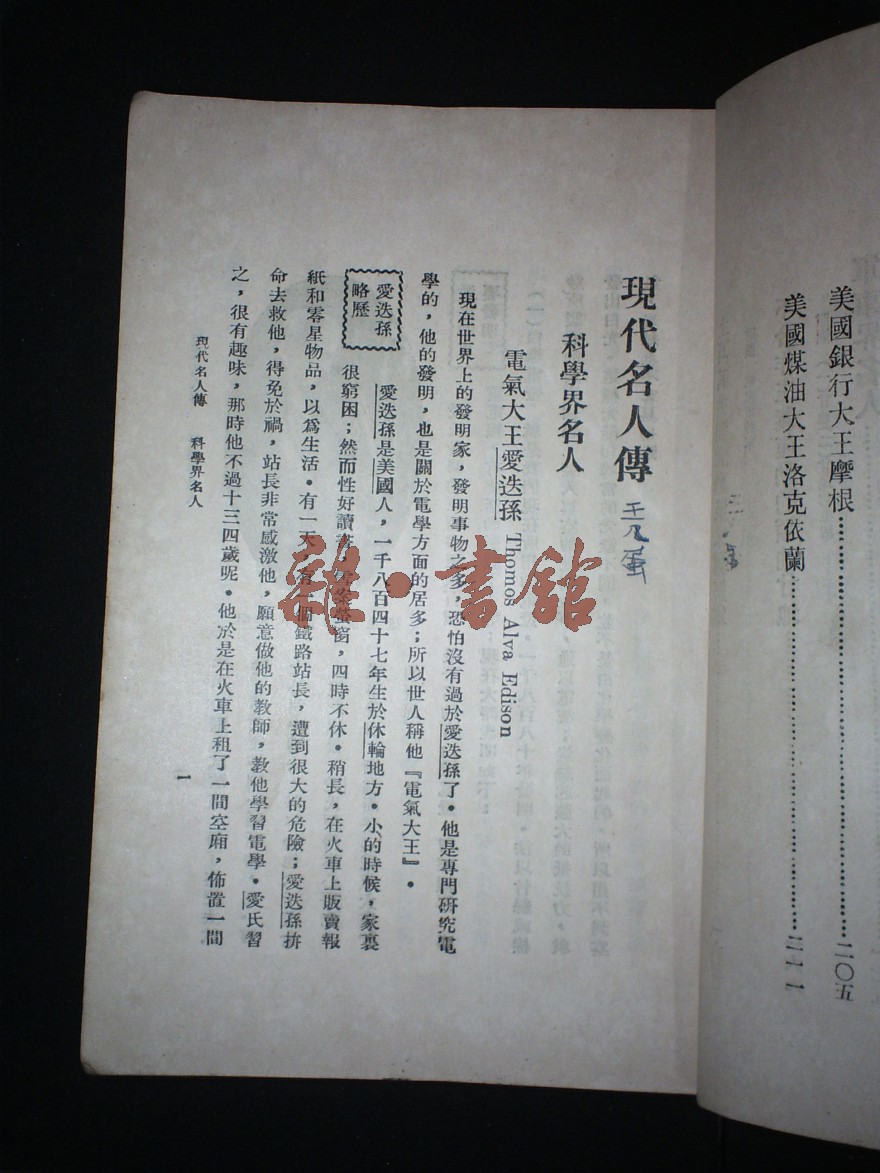 美國銀行大王摩根……………………………二〇五
美國煤油大王洛克依蘭……………………………二一一
現代名人傳
王八蛋
科學界名人
電氣大王愛迭孫 Thomos Alva Edison
現在世界上的發明家，發明事物之多，恐怕沒有過於愛迭孫了。他是專門研究電
學的，他的發明，也是關於電學方面的居多；所以世人稱他『電氣大王』。
愛迭孫
略歷
愛迭孫是美國人，一千八百四十七年生於休輪地方。小的時候，家裏
很窮困；然而性好讀書，雪案螢窗，四時不休。稍長，在火車上販賣報
紙和零星物品，以爲生活。有一天，有一個鐵路站長，遭到很大的危險；愛迭孫拚
命去救他，得免於禍，站長非常感激他，願意做他的教師，教他學習電學。愛氏習
之，很有趣味，那時他不過十三四歲呢。他於是在火車上租了一間空廂，佈置一間
現代名人傳　科學界名人
一
雜·書館